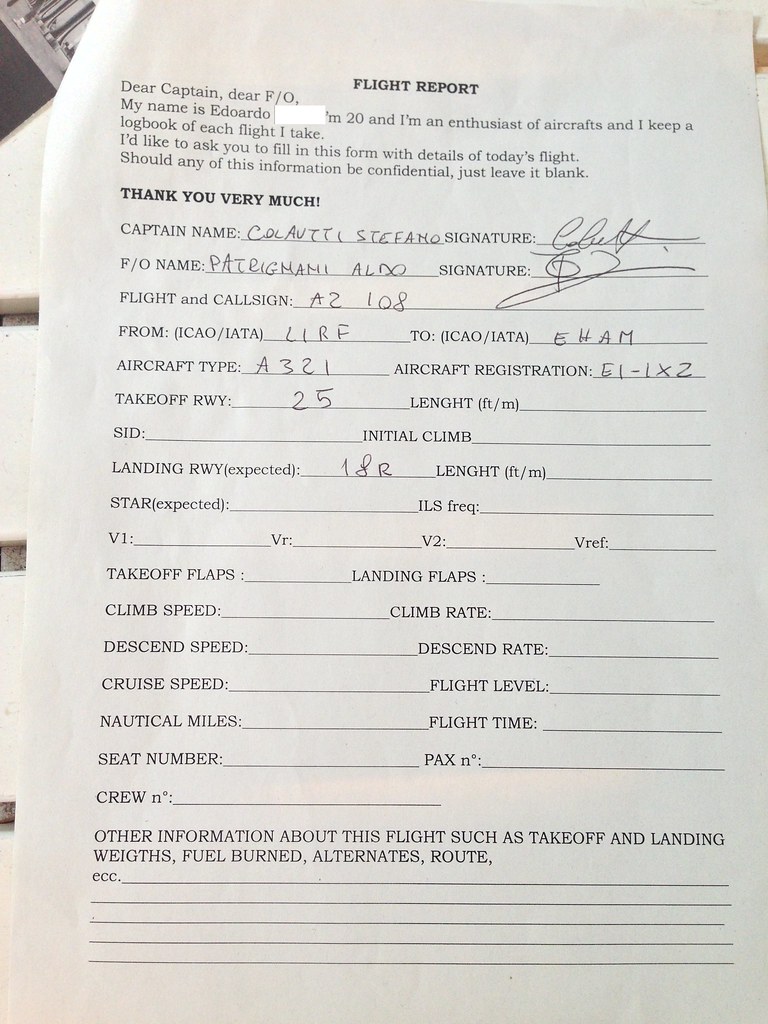 FLIGHT REPORT
Dear Captain, dear F/O,
My name is Edoardo 'm 20 and I'm an enthusiast of aircrafts and I keep a
logbook of each flight I take.
I'd like to ask you to fill in this form with details of today's flight.
Should any of this information be confidential, just leave it blank.
THANK YOU VERY MUCH!
CAPTAIN NAME: COLAUTTI STEFANO SIGNATURE:
F/O NAME: PATRIGNANI ALDO SIGNATURE:
FLIGHT and CALLSIGN: AZ 108
FROM: (ICAO/IATA) LIRF TO: (ICAO/IATA) EHAM
AIRCRAFT TYPE: A321 AIRCRAFT REGISTRATION: EI-IXZ
TAKEOFF RWY: 25 LENGHT (ft/m)
SID: INITIAL CLIMB
LANDING RWY(expected): 18R LENGHT (ft/m)
STAR(expected): ILS freq:
V1: Vr: V2: Vref:
TAKEOFF FLAPS : LANDING FLAPS :
CLIMB SPEED: CLIMB RATE:
DESCEND SPEED: DESCEND RATE:
CRUISE SPEED: FLIGHT LEVEL:
NAUTICAL MILES: FLIGHT TIME:
SEAT NUMBER: PAX n°:
CREW n°:
OTHER INFORMATION ABOUT THIS FLIGHT SUCH AS TAKEOFF AND LANDING
WEIGTHS, FUEL BURNED, ALTERNATES, ROUTE,
ecc.